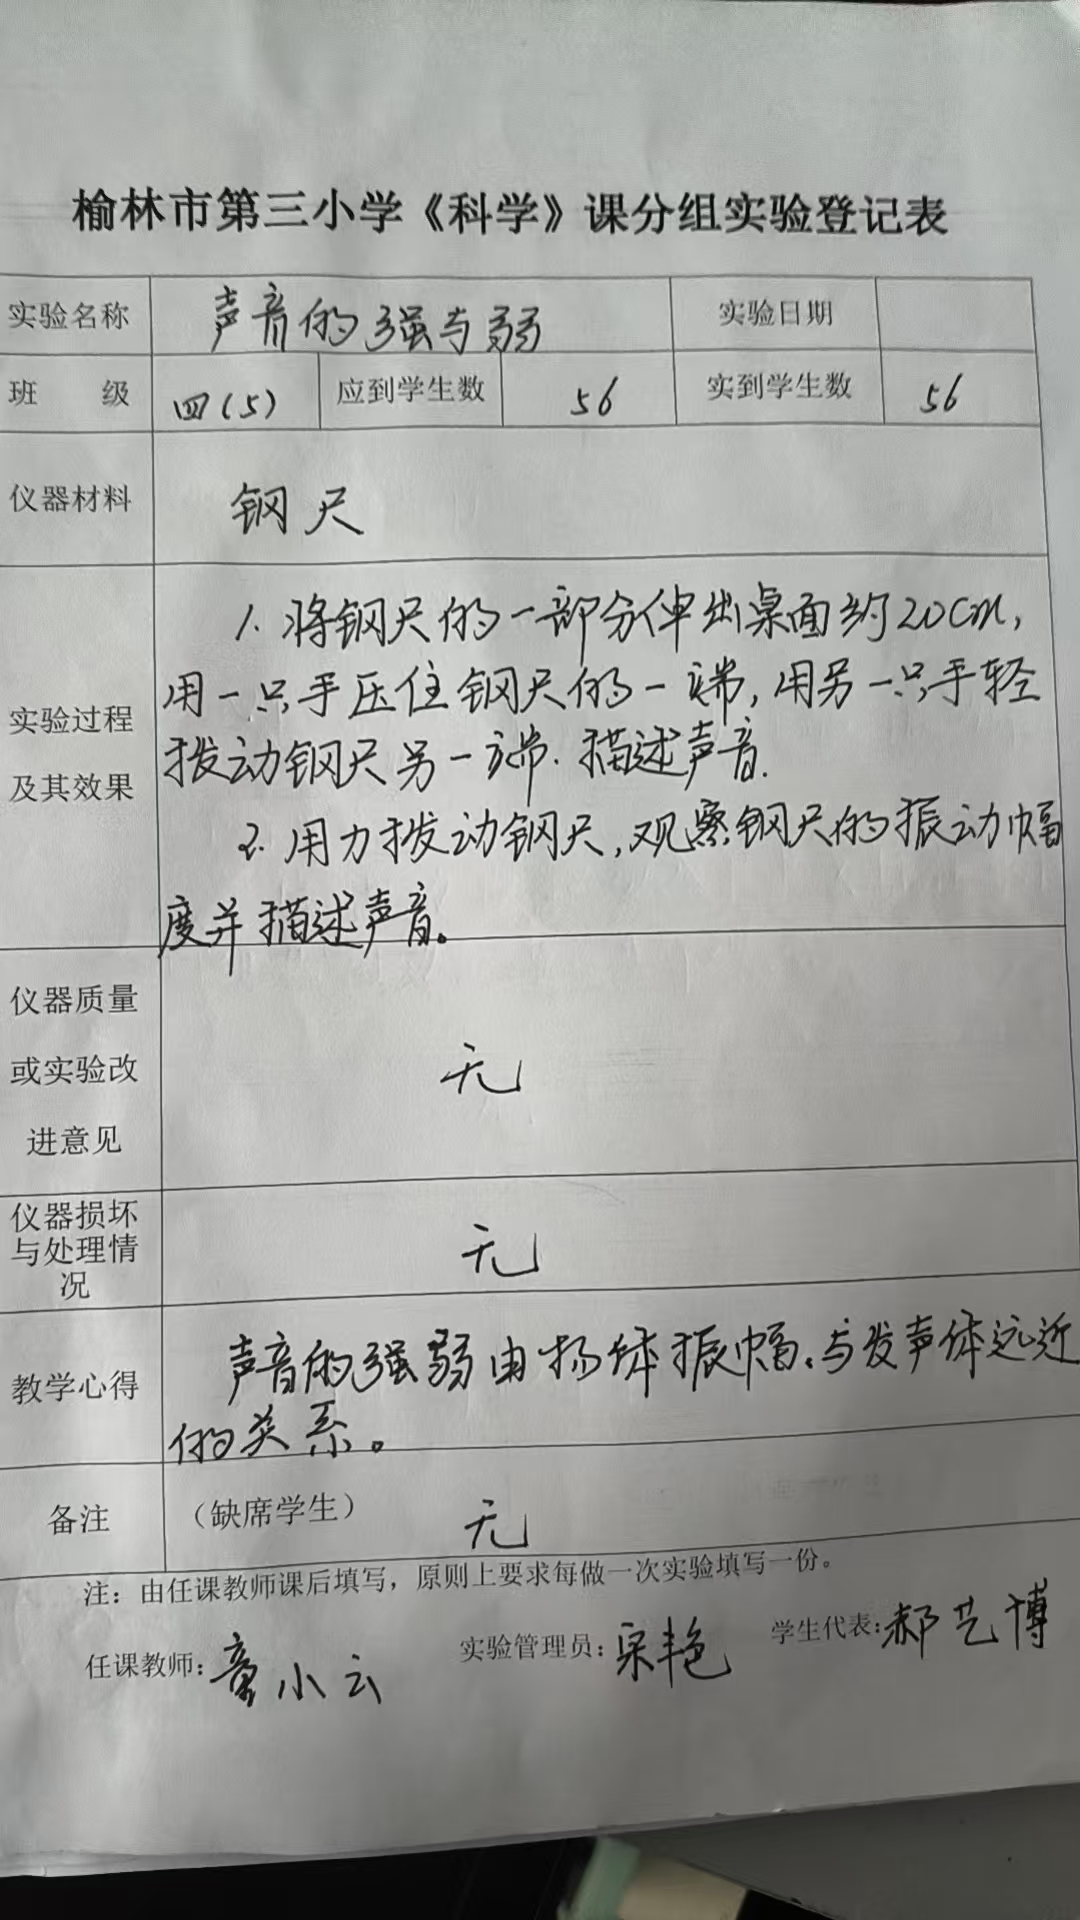 榆林市第三小学《科学》课分组实验登记表
实验名称 声音的强与弱 实验日期
班 级 四(5) 应到学生数 56 实到学生数 56
仪器材料 钢尺
实验过程
及其效果
1.将钢尺的一部分伸出桌面约20cm,
用一只手压住钢尺的一端,用另一只手轻
拨动钢尺另一端.描述声音.
2.用力拨动钢尺,观察钢尺的振动幅
度并描述声音。
仪器质量
或实验改
进意见
无
仪器损坏
与处理情
况
无
教学心得
声音的强弱由物体振幅、与发声体远近
的关系。
备注 (缺席学生) 无
注:由任课教师课后填写,原则上要求每做一次实验填写一份。
任课教师:童小云 实验管理员:宋艳 学生代表:郝艺博